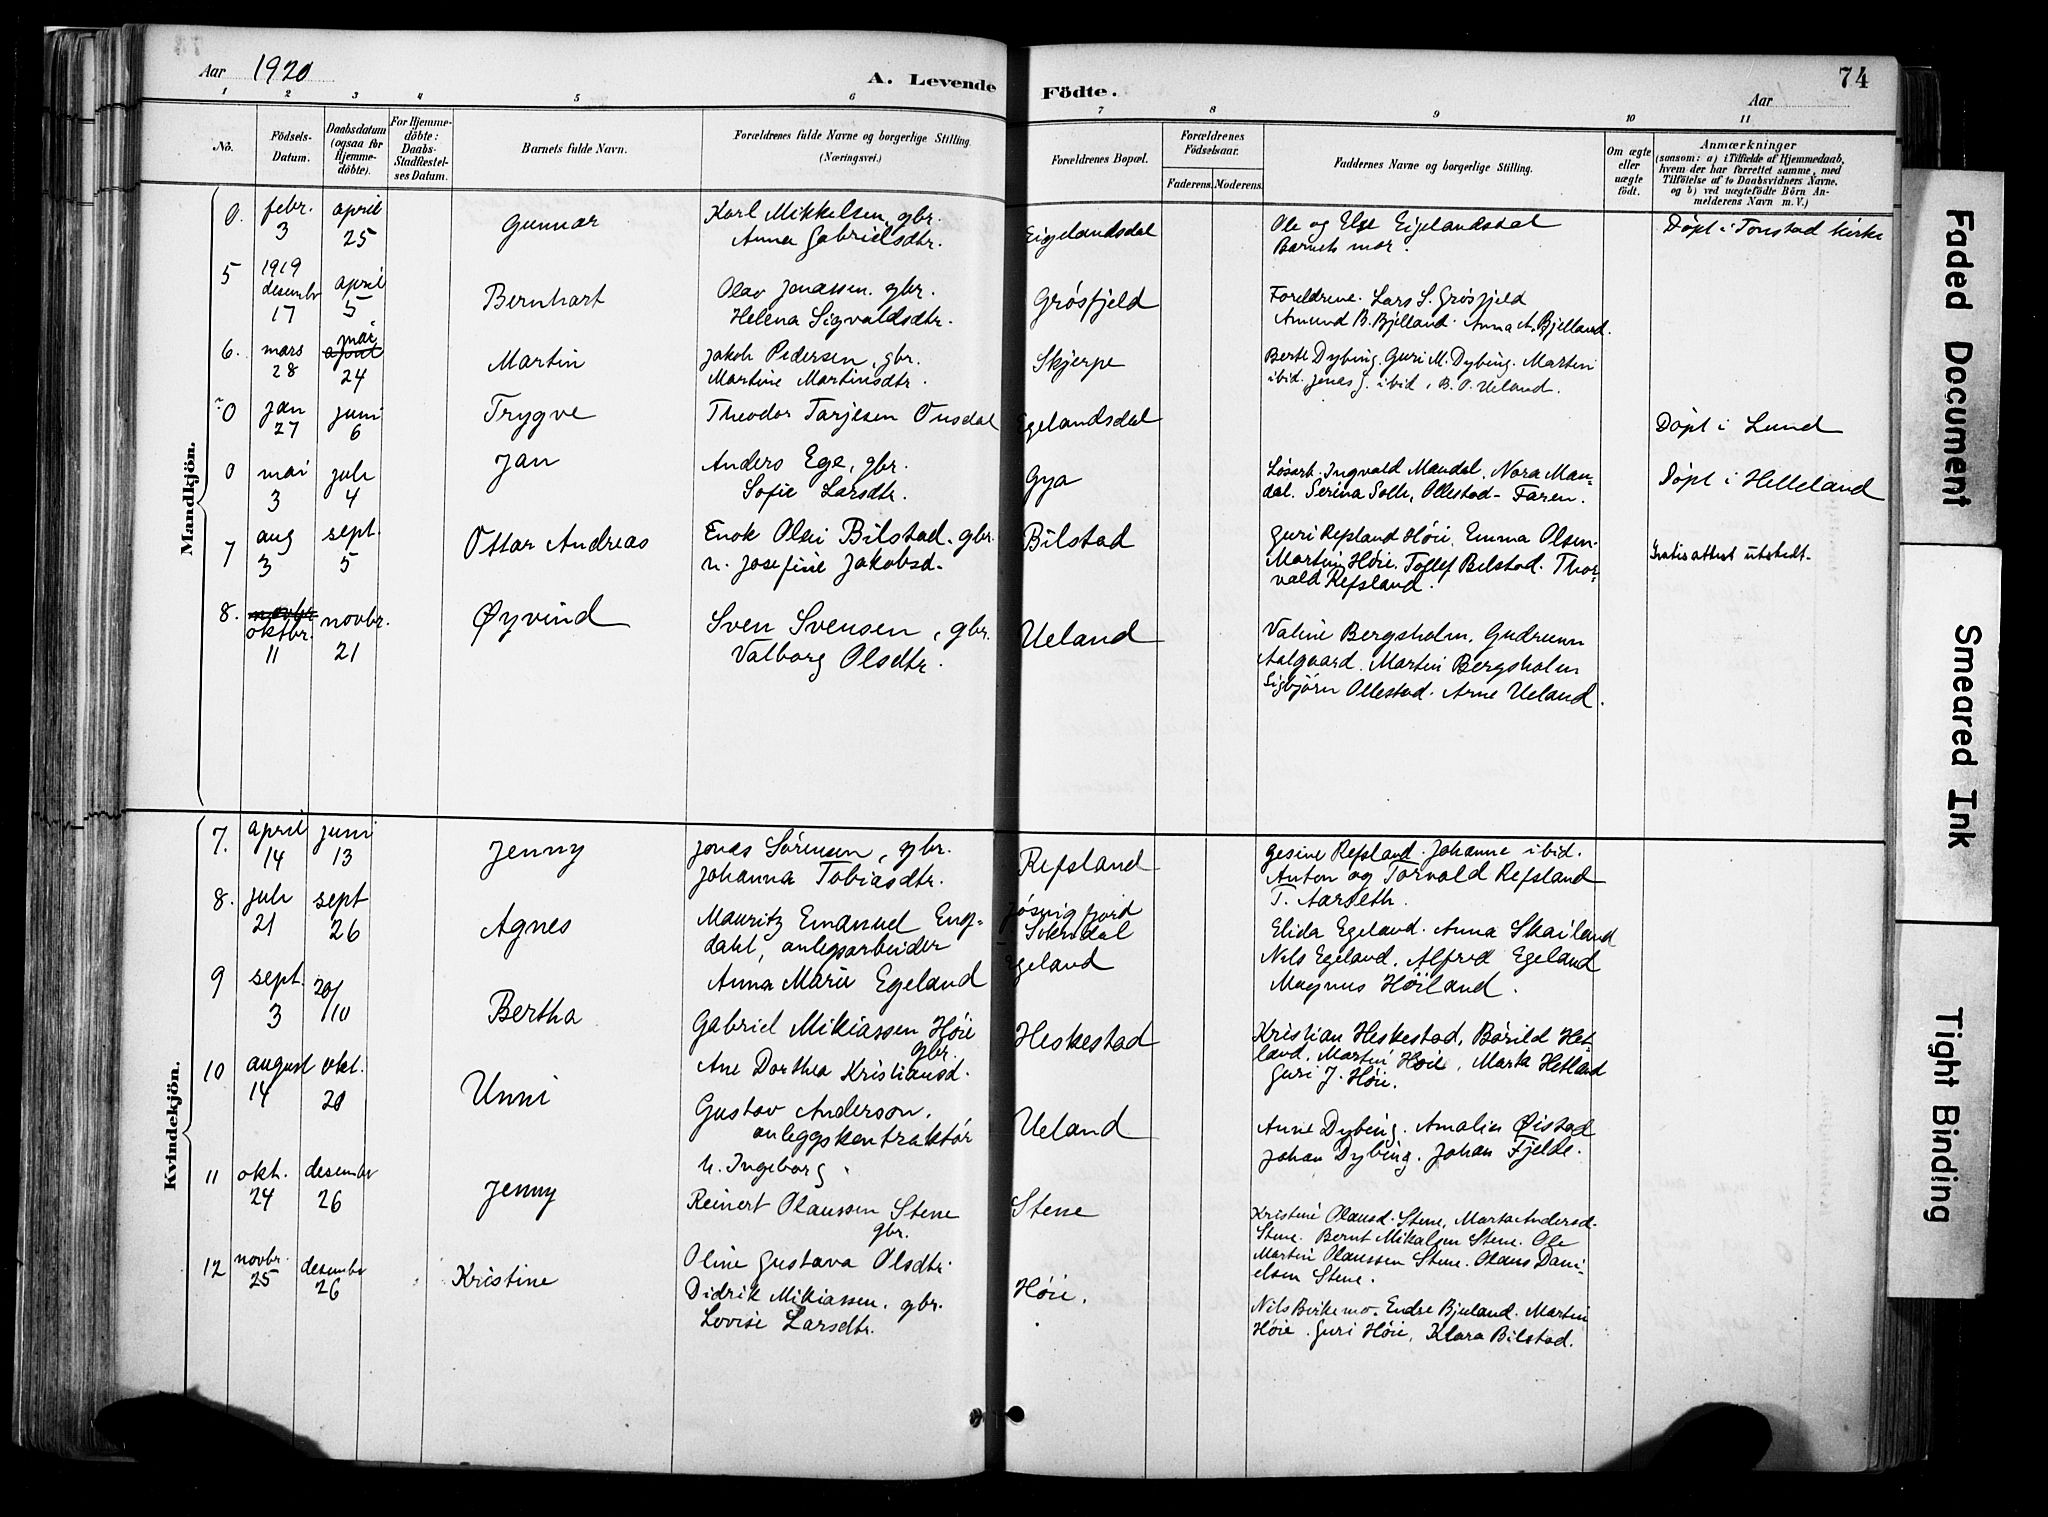 Aar 1920
A. Levende Födte.
74
Aar
1 2 3 4 5 6 7 8 9 10 11
No.
Födsels-
Datum.
Daabsdatum
(ogsaa for
Hjemme-
döbte).
For Hjemme-
döbte:
Daabs-
Stadfæstel-
ses Datum.
Barnets fulde Navn.
Forældrenes fulde Navne og borgerlige Stilling.
(Næringsvei.)
Forældrenes Bopæl.
Forældrenes
Födselsaar.
Faderens. Moderens.
Faddernes Navne og borgerlige Stilling.
Om ægte
eller
uægte
födt.
Anmærkninger
(saasom: a) i Tilfælde af Hjemmedaab,
hvem der har forrettet samme, med
Tilföielse af to Daabsvidners Navne.
og b) ved uægtefödte Börn An-
melderens Navn m. V.)
Mandkjön.
0. febr. 3
april 25
Gunnar
Karl Mikkelsen, gbr.
Anna Gabrielsdtr.
Eigelandsdal
Ole og Else Eigelandsdal
Barnets mor.
Döpt i Tonstad kirke
5 1919 desembr 17
april 5
Bernhart
Olav Jonassen. gbr.
Helena Sigvaldsdtr.
Grösfjeld
Foreldrene. Lars S. Grösfjeld
Amund B. Bjelland. Anna A. Bjelland.
6. mars 28
mai april 24
Martin
Jakob Pedersen, gbr.
Martine Martinsdtr.
Skjerpe
Berte Dybing. Guri M. Dybing. Martin
ibid. Jonas J. ibid, B. O. Ueland.
0 jan 27
juni 6
Trygve
Theodor Tarjesen Onsdal
Egelandsdal
Döpt i Lund
0 mai 3
juli 4
Jan
Anders Ege, gbr.
Sofie Larsdtr.
Gya
Løsarb. Ingvald Mandal, Nora Man-
dal. Serina Ollestad-
Döpt i Helleland
7 aug 3
sept. 5
Ottar Andreas
Enok Olsen Bilstad. gbr.
h. Josefine Jakobsd.
Bilstad
Guri Refsland Höie, Emma Olsen.
Martin Höie. Tollef Bilstad. Thor-
vald Refsland.
Gratis attest utstedt.
8. novbr oktbr. 11
novbr. 21
Øyvind
Sven Svensen, gbr.
Valborg Olsdtr.
Ueland
Valine Bergsholm, Gudrunn
Aalgaard. Martin Bergsholm
Sigbjörn Ollestad. Arne Ueland.
Kvindekjön.
7. april 14
juni 13
Jenny
Jonas Sörensen, gbr.
Johanna Tobiasdtr.
Refsland
Gesine Refsland. Johanne ibid.
Anton og Torvald Refsland
T. Aarseth.
8. juli 21
sept 26
Agnes
Mauritz Emanuel Eng-
dahl, anlegsarbeider
Anna Marie Egeland
Jösingfjord
Sokndal
Egeland
Elida Egeland. Anna Skailand
Nils Egeland. Alfred Egeland
Magnus Höiland.
9 sept. 3
20/10
Bertha
Gabriel Mikiassen Höie
gbr.
Ane Dorthea Kristiansd.
Heskestad
Kristian Heskestad, Bórild Het-
land, Martin Höie, Marta Hetland
Guri J. Höie.
10 august 14
okt. 20
Unni
Gustav Anderson,
anleggskontraktör
h. Ingeborg.
Ueland
Anne Dybing. Amalia Øistad
Johan Dybing. Johan Fjelde.
11 okt. 24
desember 26
Jenny
Reinert Olaussen Stene
gbr.
Oline Gustava Olsdtr.
Stene
Kristine Olausd. Stene, Marta Andersd.
Stene. Bernt Mikalsen Stene. Ole
Martin Olaussen Stene. Olaus Dani-
elsen Stene.
12 novbr. 25
desember 26
Kristine
Didrik Mikiassen, gbr.
Lovise Larsdtr.
Höie.
Nils Birkemo. Endre Bjuland. Martin
Höie. Guri Höie, Klara Bilstad.
Faded Document
Smeared Ink
Tight Binding